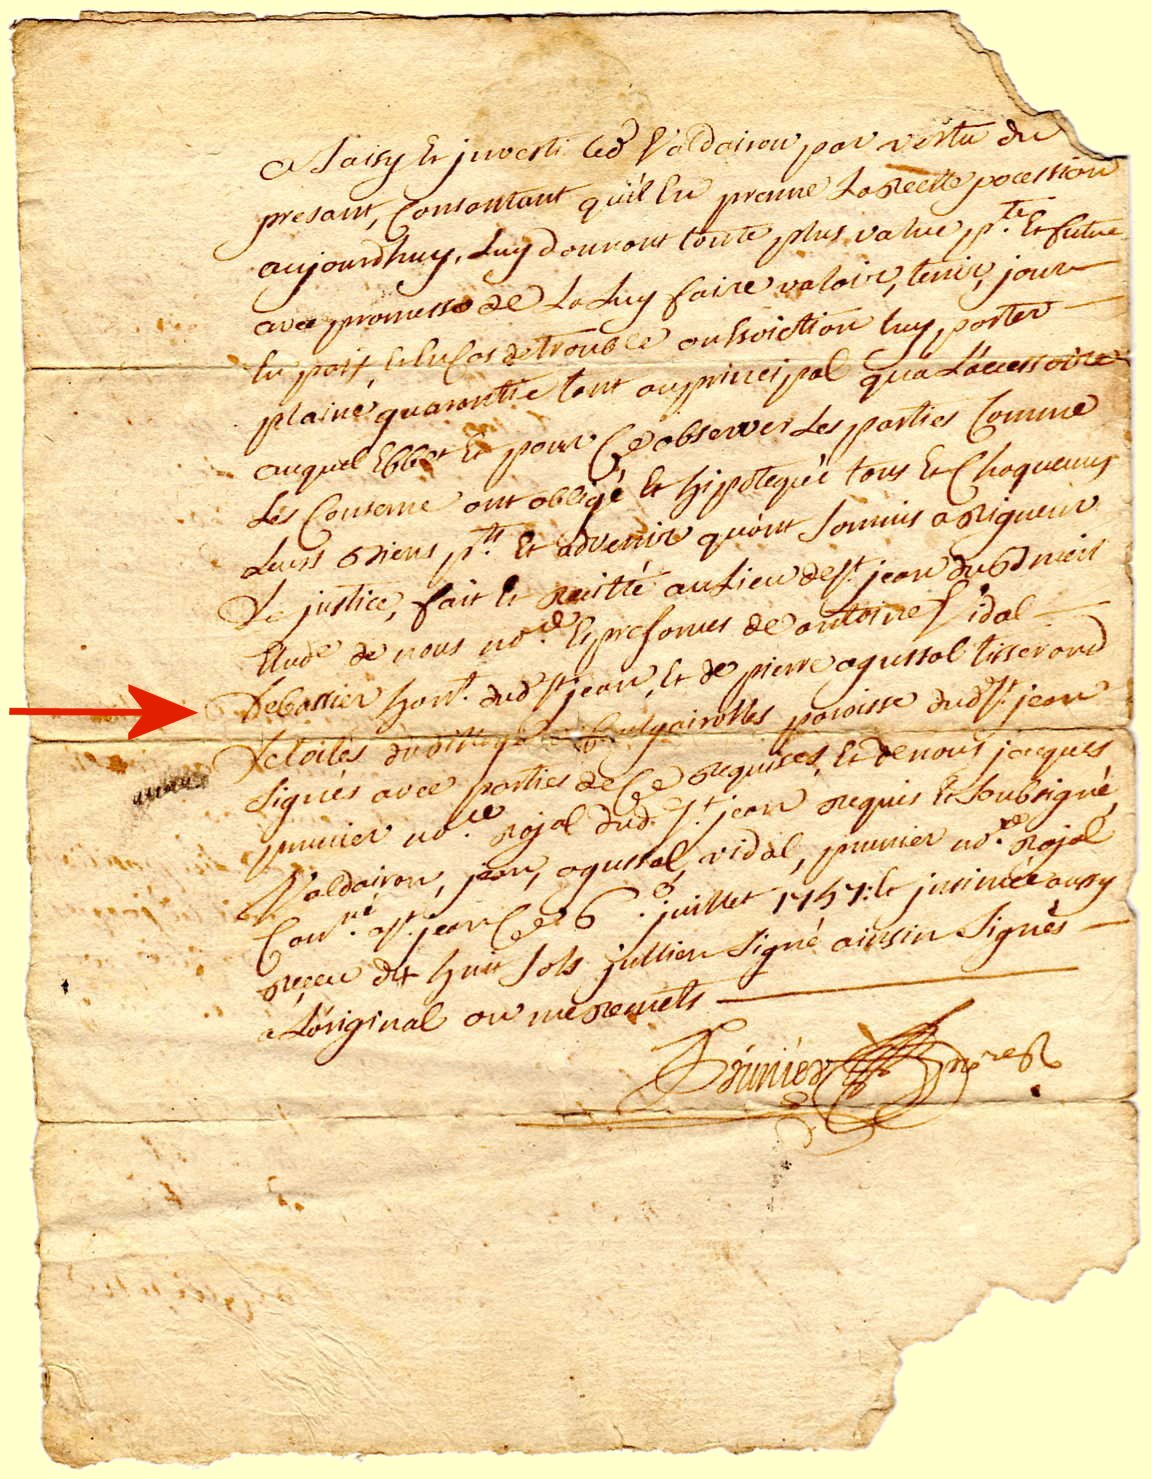 a saisy et jnvesti led. Valdairon par vertu du
presant, Consantant qu'il En prenne La reelle pocession
aujourdhuy, Luy donnant toute plus value p.te Et future
avec promesse de La Luy faire valoir, tenir, jouir
En paix, Et En Cas de trouble ou Eviction luy porter
plaine guarantie tant au principal qua Laccessoire
auquel Effet Et pour Ce observer Les parties Comme
Les Conserne ont obligé Et hippotequée tous Et Chaquuns
Leurs Biens p.ts Et advenir quont soumis a Rigueur
De justice, fait Et Recitté au Lieu de s.t jean du
Etude de nous no.re Es presances de antoine Vidal
Debassier hant. dud. s.t jean, Et de pierre agussol tisserand
De toiles paroisse dud. s.t jean
signés avec parties de Ce Requises, Et de nous jacques
prunier no.re Rojal dud. s.t jean Requis Et soubsigné,
Valdairon, jean, agussol, vidal, prunier no.re Rojal
Con.né a s.t jean Ce 6.e juillet 1757: Et jnsinué aussy
Reçeu dix huit sols jullien signé ainsin signés
a L'original ou me Remets
Prunier n.re R.